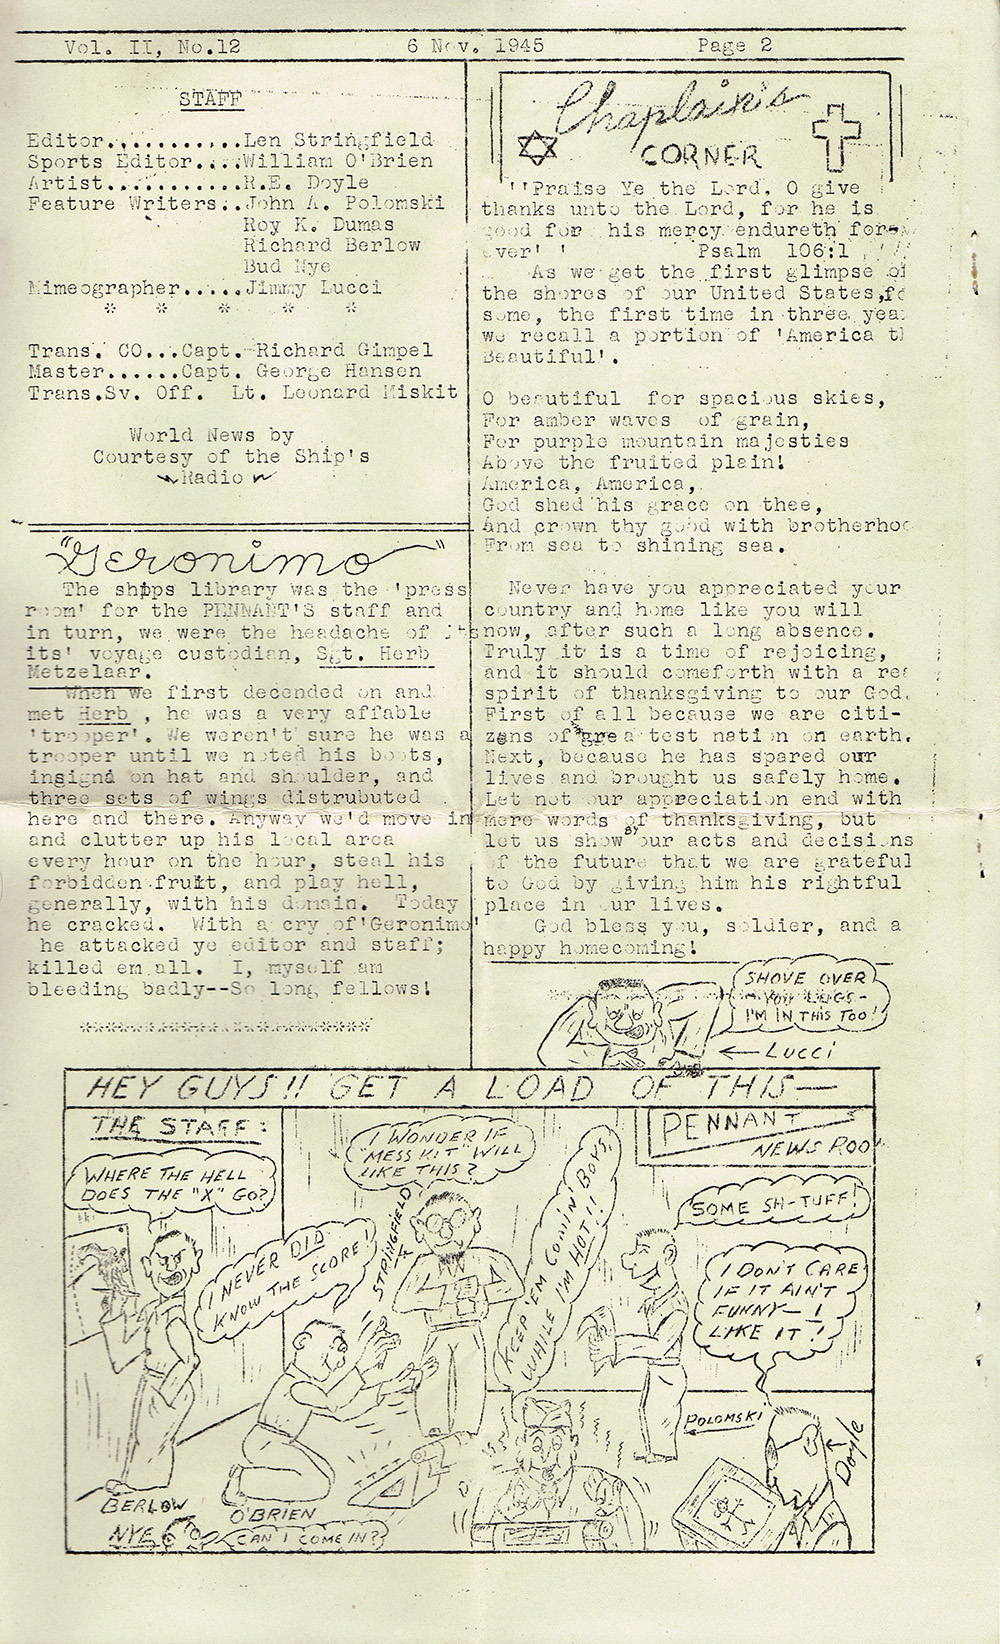 Vol. II, No.12 6 Nov. 1945 Page 2
STAFF
Editor...........Len Stringfield
Sports Editor....William O'Brien
Artist...........R.E. Doyle
Feature Writers..John A. Polomski
Roy K. Dumas
Richard Berlow
Bud Nye
Mimeographer.....Jimmy Lucci
* * * * *
Trans. CO...Capt. Richard Gimpel
Master......Capt. George Hansen
Trans.Sv. Off. Lt. Leonard Miskit
World News by
Courtesy of the Ship's
Radio
"Geronimo"
The ships library was the 'press
room' for the PENNANT'S staff and
in turn, we were the headache of its
its' voyage custodian, Sgt. Herb
Metzelaar.
When we first decended on and
met Herb , he was a very affable
'trooper'. We weren't sure he was a
trooper until we noted his boots,
insigna on hat and shoulder, and
three sets of wings distrubuted
here and there. Anyway we'd move in
and clutter up his local area
every hour on the hour, steal his
forbidden fruit, and play hell,
generally, with his domain. Today
he cracked. With a cry of'Geronimo'
he attacked ye editor and staff;
killed em all. I, myself am
bleeding badly--So long fellows!
***********************
Chaplain's
CORNER
''Praise Ye the Lord, O give
thanks unto the Lord, for he is
good for his mercy endureth for-
ever' ' Psalm 106:1
As we get the first glimpse of
the shores of our United States,fo
some, the first time in three yea
we recall a portion of 'America th
Beautiful'.
O beautiful for spacious skies,
For amber waves of grain,
For purple mountain majesties
Above the fruited plain!
America, America,
God shed his grace on thee,
And crown thy good with brotherhoo
From sea to shining sea.
Never have you appreciated your
country and home like you will
now, after such a long absence.
Truly it is a time of rejoicing,
and it should comeforth with a rea
spirit of thanksgiving to our God.
First of all because we are citi-
zens of greatest nation on earth.
Next, because he has spared our
lives and brought us safely home.
Let not our appreciation end with
mere words of thanksgiving, but
let us show BY our acts and decisions
of the future that we are grateful
to God by giving him his rightful
place in our lives.
God bless you, soldier, and a
happy homecoming!
SHOVE OVER
YOU LUGS-
I'M IN THIS TOO!
← LUCCI
HEY GUYS!! GET A LOAD OF THIS—
THE STAFF:
WHERE THE HELL
DOES THE "X" GO?
I WONDER IF
"MESS KIT" WILL
LIKE THIS?
PENNANT
NEWS ROO
I NEVER DID
KNOW THE SCORE!
STRINGFIELD
KEEP 'EM COMIN' BOYS,
WHILE I'M HOT!!
SOME SH-TUFF!
I DON'T CARE
IF IT AIN'T
FUNNY— I
LIKE IT!
POLOMSKI
Doyle
BERLOW
O'BRIEN
NYE
CAN I COME IN?